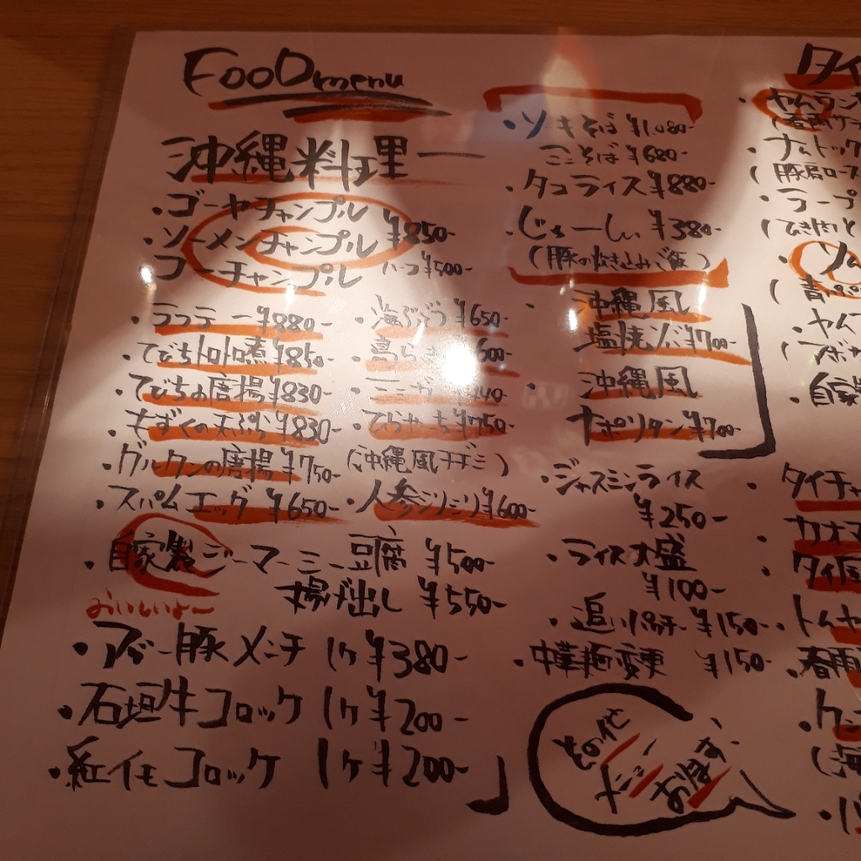 FooD menu
沖縄料理
・ゴーヤチャンプル
・ソーメンチャンプル ¥850-
フーチャンプル ハーフ¥500-
・ラフテー ¥880-
・てびちトロトロ煮 ¥850-
・てびちの唐揚 ¥830-
・もずくの天ぷら ¥830-
・グルクンの唐揚 ¥750-
・スパムエッグ ¥650-
・海ぶどう ¥650-
・島らっきょ 600-
・ミミガー ¥440-
・ひらやーち ¥750-
(沖縄風チヂミ)
・人参シリシリ ¥600-
・自家製ジーマーミー豆腐 ¥500-
おいしいよー 揚げ出し ¥550-
・アグー豚メンチ 1ヶ ¥380-
・石垣牛コロッケ 1ヶ ¥200-
・紅イモコロッケ 1ヶ ¥200-
・ソーキそば ¥1,080-
ここそば ¥680-
・タコライス ¥880-
・じゅーしぃ ¥380-
(豚の炊き込みご飯)
・沖縄風
塩焼そば ¥700-
・沖縄風
ナポリタン ¥700-
・ジャスミンライス
¥250-
・ライス大盛
¥100-
・追いパクチー ¥150-
・中華麺変更 ¥150-
その他
おります、
タイ
・ヤムウン
・ナムトック
(豚肩ロース
・ラープ
(ひき肉と
・ソム
(青パパ
・ヤム
・自家
・タイチャ
・カオマ
・タイ風
・トムヤ
・春雨
(海